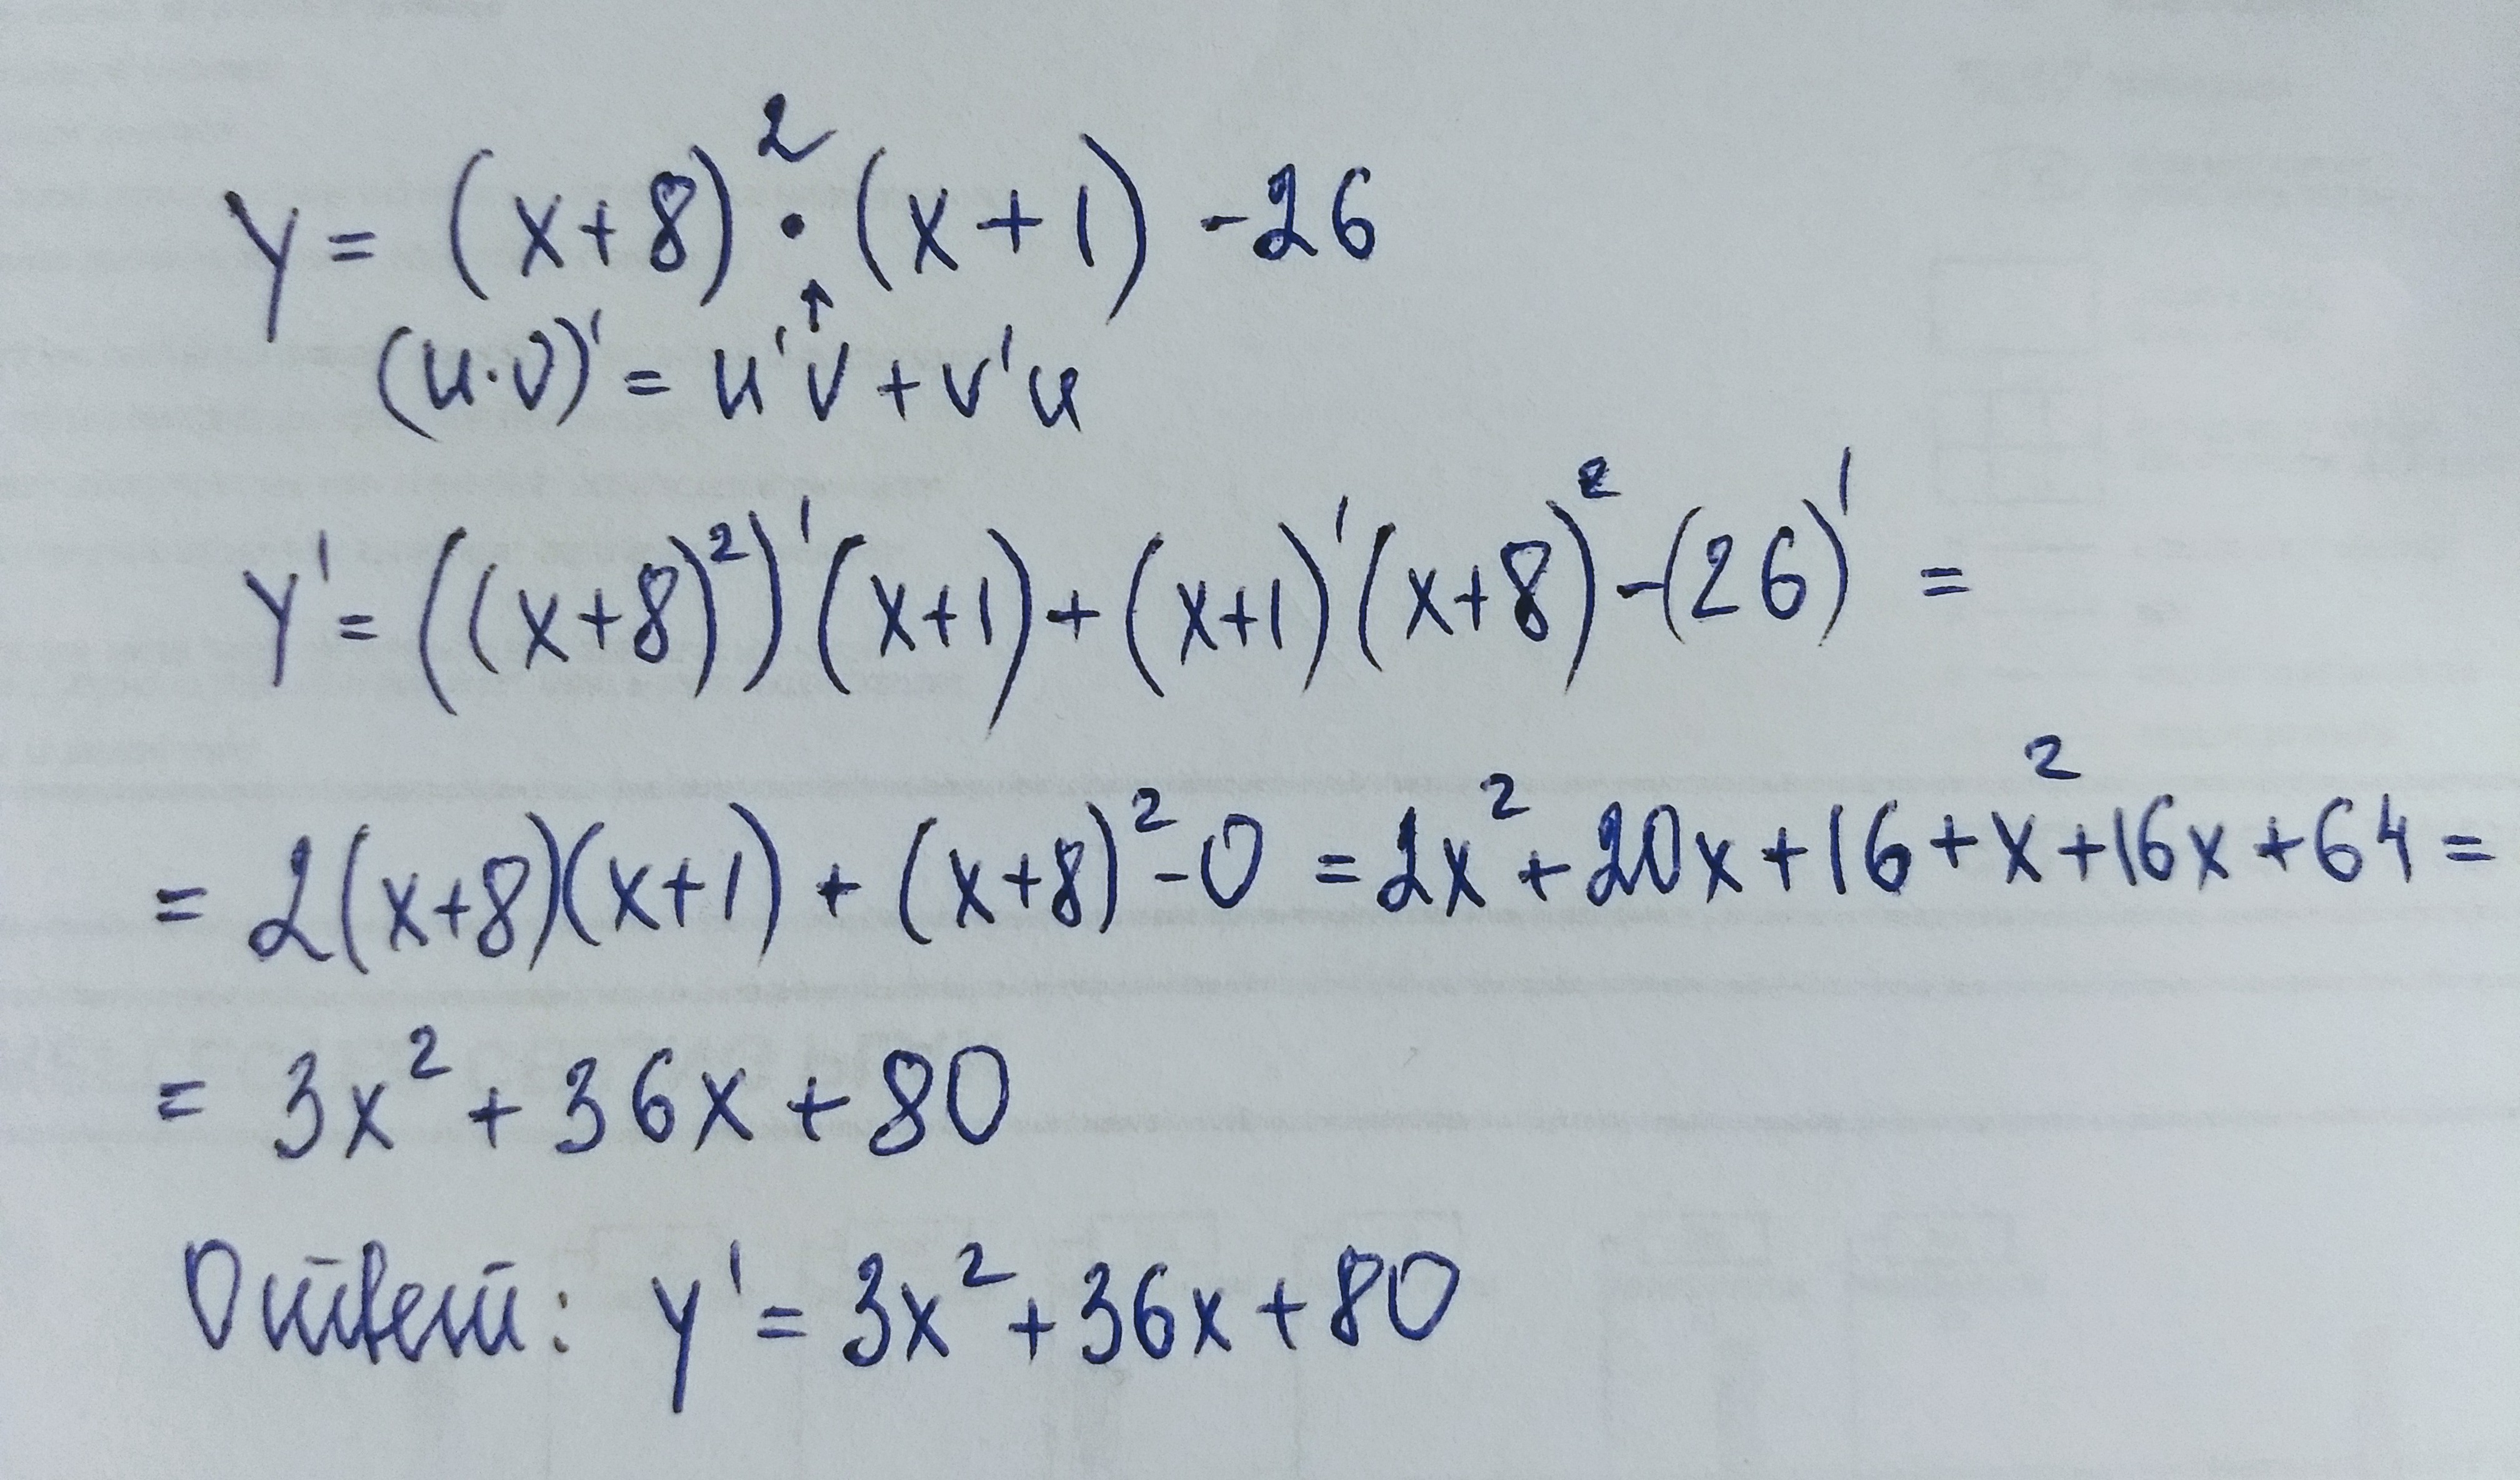 y = (x+8)² · (x+1) -26
(u·v)' = u'v + v'u
y' = ((x+8)²)'(x+1) + (x+1)'(x+8)² - (26)' =
= 2(x+8)(x+1) + (x+8)² - 0 = 2x² + 20x + 16 + x² + 16x + 64 =
= 3x² + 36x + 80
Ответ: y' = 3x² + 36x + 80